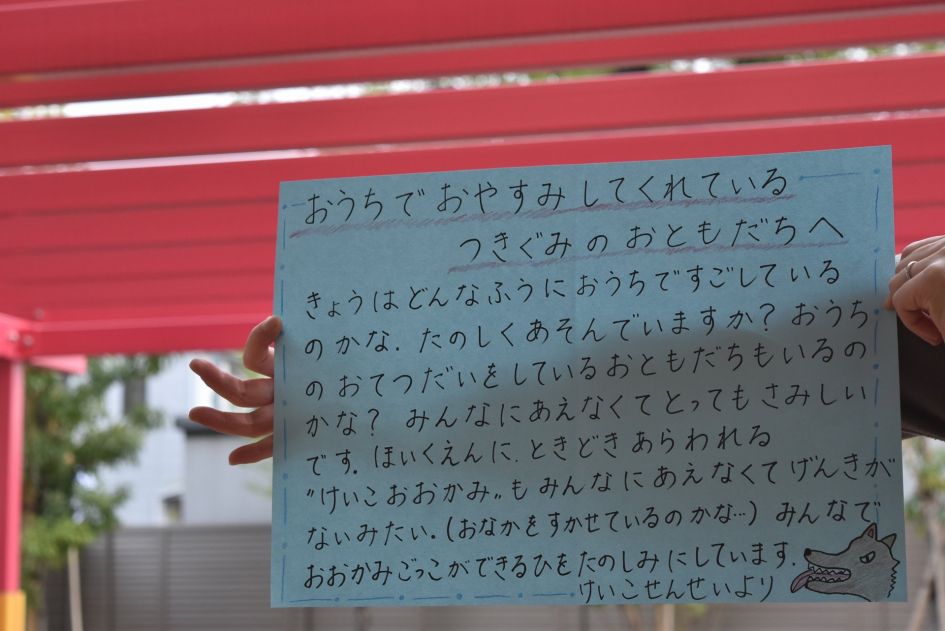 おうちで おやすみ してくれている
つきぐみ の おともだち へ
きょうは どんなふうに おうちですごしている
の かな. たのしく あそんでいますか? おうち
の おてつだいをしているおともだちもいるの
かな? みんなにあえなくて とっても さみしい
です. ほいくえんに、ときどき あらわれる
"けいこ おおかみ"も みんなに あえなくて げんきが
ないみたい.(おなかを すかせているの かな…) みんなで
おおかみごっこが できるひを たのしみ にしています.
けいこせんせいより